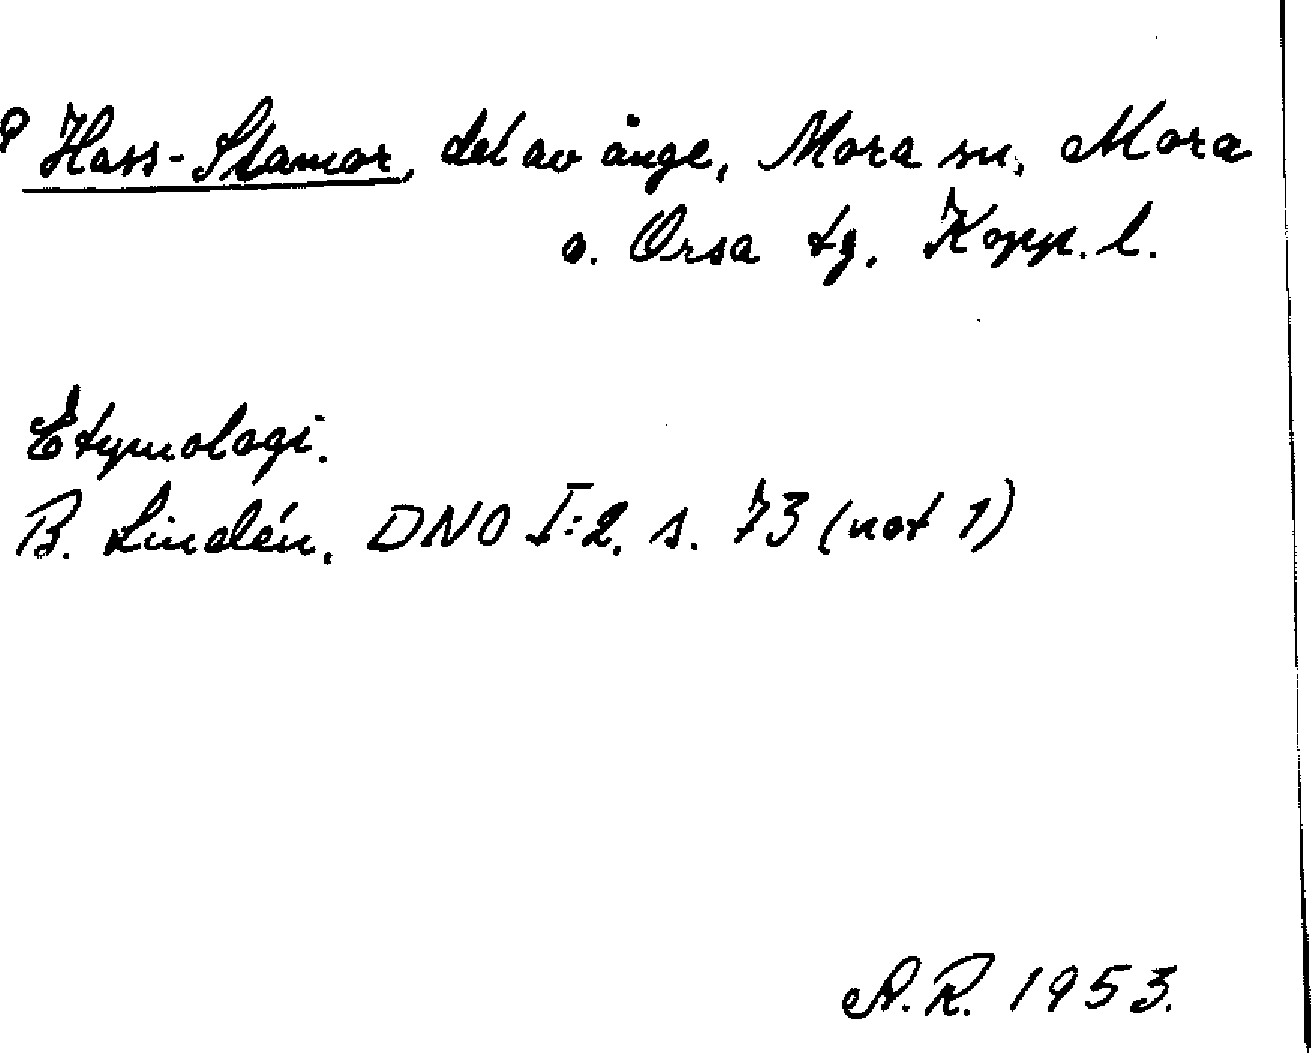 Hass-Stamor, del av änge, Mora sn, Mora
o. Orsa tg, Kopp. l.
Etymologi.
B. Lindén, DNO I:2, s. 73 (not 1)
A.R. 1953.